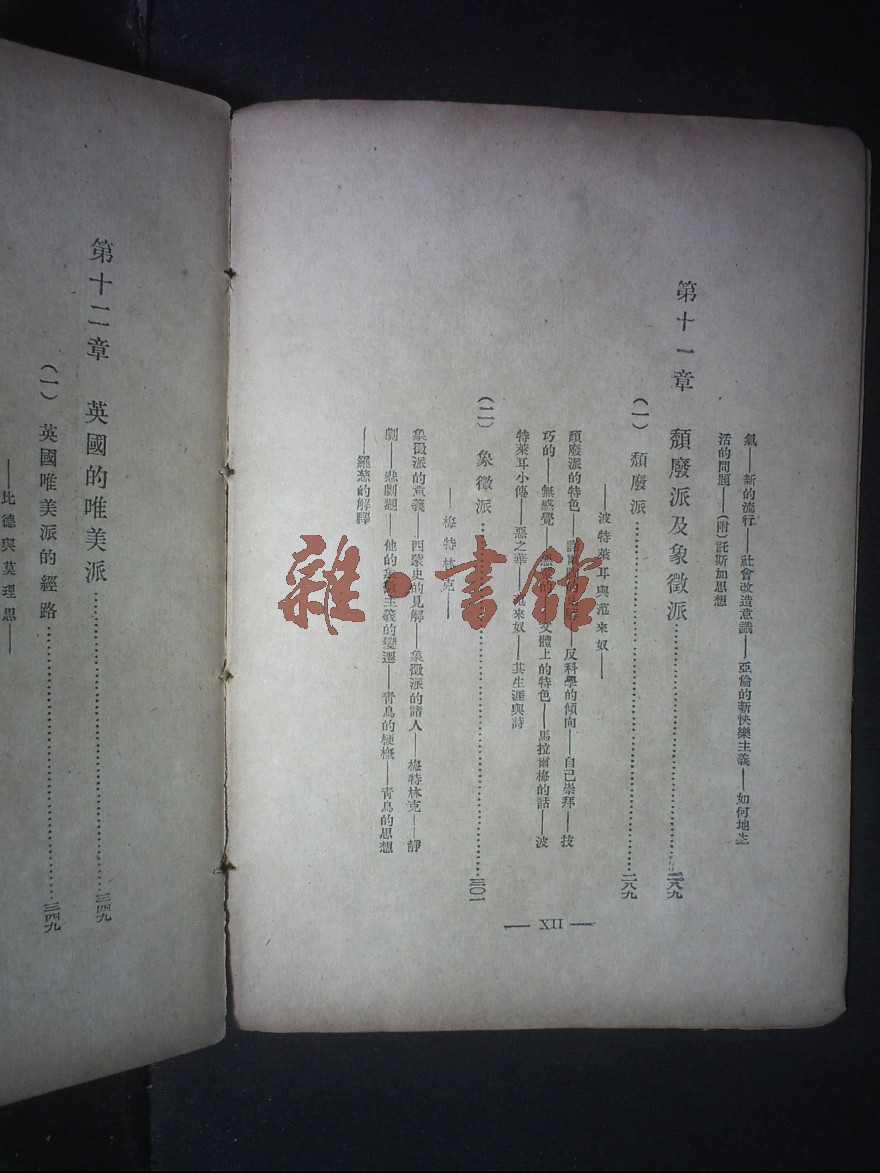 氣——新的流行——社會改造意識——亞倫的新快樂主義——如何地生
活的問題——(附)託斯加思想
第十一章 頹廢派及象徵派……二八九
(一) 頹廢派……二八九
——波特萊耳與范來奴——
頹廢派的特色——反科學的傾向——自己崇拜——技
巧的——無感覺——文體上的特色——馬拉爾梅的話——波
特萊耳小傳——惡之華——范來奴——其生涯與詩
(二) 象徵派……三〇一
——梅特林克——
象徵派的意義——西蒙史的見解——象徵派的諸人——梅特林克——靜
劇——悲劇觀——他的象徵主義的變遷——青鳥的梗概——青鳥的思想
——羅慈的解釋
— XII —
第十二章 英國的唯美派……三四九
(一) 英國唯美派的經路……三四九
——比德與莫理思——
雜·書館